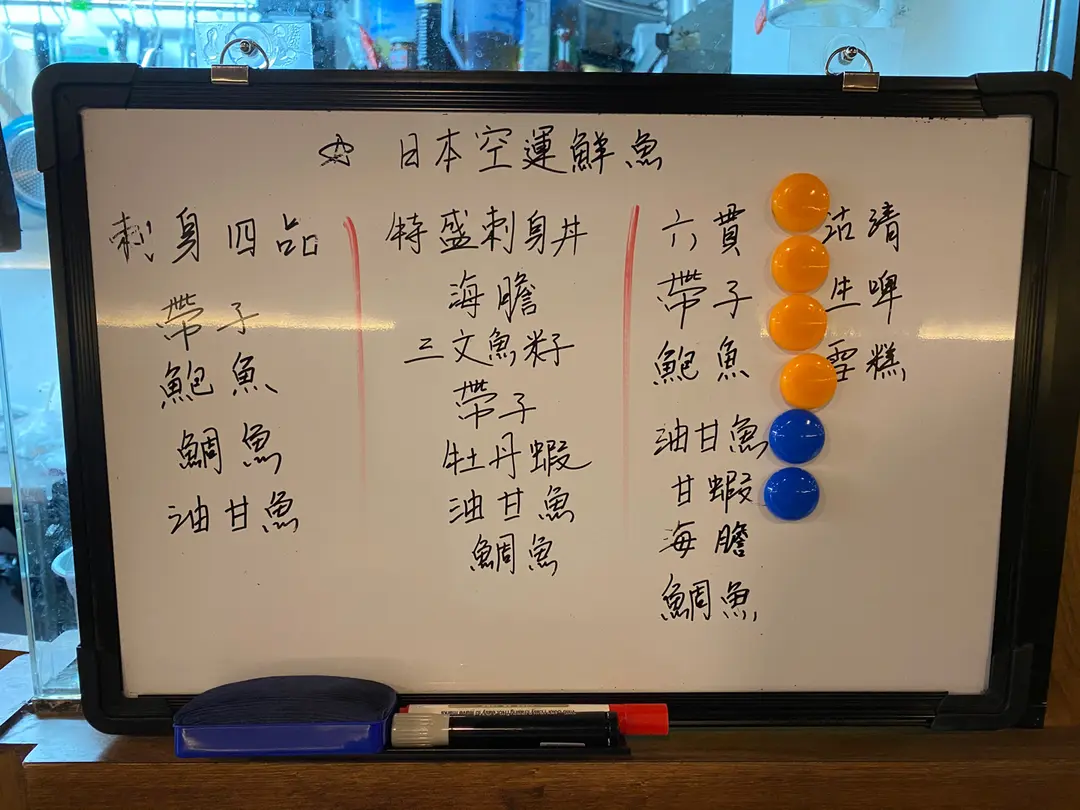 ☆ 日本空運鮮魚
刺身四品
帶子
鮑魚
鯛魚
油甘魚
特盛刺身丼
海膽
三文魚籽
帶子
牡丹蝦
油甘魚
鯛魚
六貫
帶子
鮑魚
油甘魚
甘蝦
海膽
鯛魚
沽清
生啤
雪糕